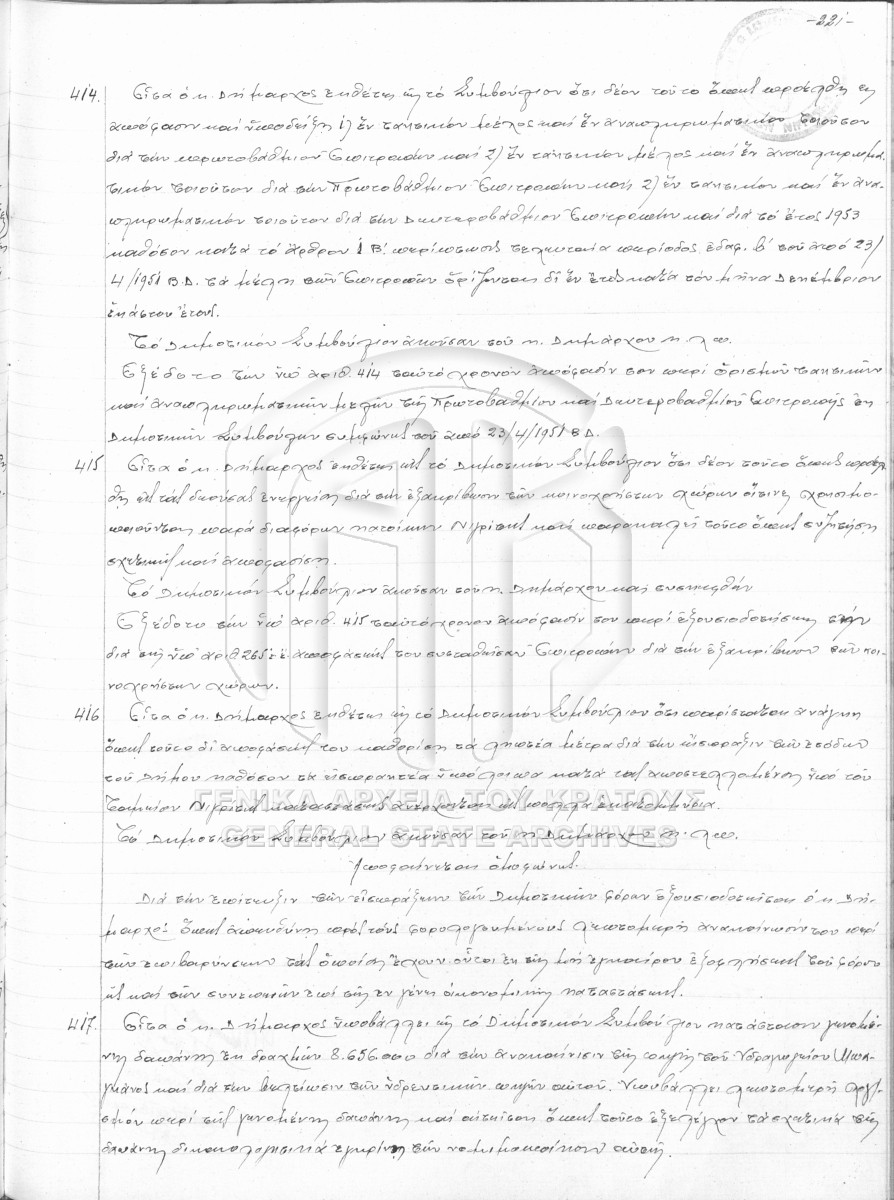 -221-
414. Εἶτα ὁ κ. Δήμαρχος ἐκθέτει εἰς τό Συμβούλιον ὅτι δέον τοῦτο ὅπως προέλθῃ εἰς
ἀπόφασιν καί ὑποδείξῃ 1) ἕν τακτικόν μέλος καί ἕν ἀναπληρωματικόν τοιοῦτον
διά τήν πρωτοβάθμιον Ἐπιτροπήν καί 2) ἕν τακτικόν μέλος καί ἕν ἀναπληρωμα-
τικόν τοιοῦτον διά τήν Πρωτοβάθμιον Ἐπιτροπήν καί 2) ἕν τακτικόν καί ἕν ἀνα-
πληρωματικόν τοιοῦτον διά τήν Δευτεροβάθμιον Ἐπιτροπήν καί διά τό ἔτος 1953
καθόσον κατά τό ἄρθρον 1 Β' περίπτωσις τελευταία περίοδος ἐδαφ. β' τοῦ ἀπό 23/
4/1951 Β.Δ. τά μέλη τῶν Ἐπιτροπῶν ὁρίζονται δι' ἕν ἔτος κατά τόν μῆνα Δεκέμβριον
ἑκάστου ἔτους.
Τό Δημοτικόν Συμβούλιον ἀκοῦσαν τοῦ κ. Δημάρχου κ.λπ.
Ἐξέδοτο τήν ὑπ' ἀριθ. 414 ταυτόχρονον ἀπόφασίν του περί ὁρισμοῦ τακτικῶν
καί ἀναπληρωματικῶν μελῶν τῆς Πρωτοβαθμίου καί Δευτεροβαθμίου Ἐπιτροπῆς ἐκ
Δημοτικῶν Συμβούλων συμφώνως τοῦ ἀπό 23/4/1951 Β.Δ.
415 Εἶτα ὁ κ. Δήμαρχος ἐκθέτει εἰς τό Δημοτικόν Συμβούλιον ὅτι δέον τοῦτο ὅπως προέλ-
θῃ εἰς τάς δεούσας ἐνεργείας διά τήν ἐξακρίβωσιν τῶν κοινοχρήστων χώρων οἵτινες χρησιμο-
ποιοῦνται παρά διαφόρων κατοίκων Νιγρίτης καί παρακαλεῖ τοῦτο ὅπως συζητήσῃ
σχετικῶς καί ἀποφασίσῃ.
Τό Δημοτικόν Συμβούλιον ἀκοῦσαν τοῦ κ. Δημάρχου καί συσκεφθέν
Ἐξέδοτο τήν ὑπ' ἀριθ. 415 ταυτόχρονον ἀπόφασίν του περί ἐξουσιοδοτήσεως τήν
διά τῆς ὑπ' ἀριθ. 265 ἀποφάσεώς του συσταθεῖσαν Ἐπιτροπήν διά τήν ἐξακρίβωσιν τῶν κοι-
νοχρήστων χώρων.
416 Εἶτα ὁ κ. Δήμαρχος ἐκθέτει εἰς τό Δημοτικόν Συμβούλιον ὅτι παρίσταται ἀνάγκη
ὅπως τοῦτο δι' ἀποφάσεώς του καθορίσῃ τά ληπτέα μέτρα διά τήν εἴσπραξιν τῶν ἐσόδων
τοῦ Δήμου καθόσον τά εἰσπρακτέα ὑπόλοιπα κατά τάς ἀποστελλομένας ὑπό τοῦ
Ταμείου Νιγρίτης καταστάσεις ἀνέρχονται εἰς πολλά ἑκατομμύρια.
ΓΕΝΙΚΑ ΑΡΧΕΙΑ ΤΟΥ ΚΡΑΤΟΥΣ
GENERAL STATE ARCHIVES
Τό Δημοτικόν Συμβούλιον ἀκοῦσαν τοῦ κ. Δημάρχου κ.λπ.
Ἀποφαίνεται ὁμοφώνως.
Διά τήν ἐπίτευξιν τῶν εἰσπράξεων τῶν Δημοτικῶν φόρων ἐξουσιοδοτεῖται ὁ κ. Δή-
μαρχος ὅπως ἀπευθύνῃ πρός τούς φορολογουμένους λεπτομερῆ ἀνακοίνωσίν του περί
τῶν ἐπιβαρύνσεων τάς ὁποίας ἔχουν οὗτοι ἐκ τῆς μή ἐγκαίρου ἐξοφλήσεως τοῦ φόρου
ὡς καί τῶν συνεπειῶν ἐπί τῆς ἐν γένει οἰκονομικῆς καταστάσεως.
417. Εἶτα ὁ κ. Δήμαρχος ὑποβάλλει εἰς τό Δημοτικόν Συμβούλιον κατάστασιν γενομέ-
νης δαπάνης ἐκ δραχμῶν 8.656.000 διά τήν ἀνακαίνισιν τῆς πηγῆς τοῦ Ὑδραγωγείου
καί διά τήν βελτίωσιν τῶν ὑδρευτικῶν πηγῶν αὐτοῦ. Ὑποβάλλει λεπτομερῆ
περί τῆς γενομένης δαπάνης καί αἰτεῖται ὅπως τοῦτο ἐξελέγχον τά σχετικά τῆς
δαπάνης δικαιολογητικά ἐγκρίνῃ τήν νομιμοποίησιν αὐτῆς.